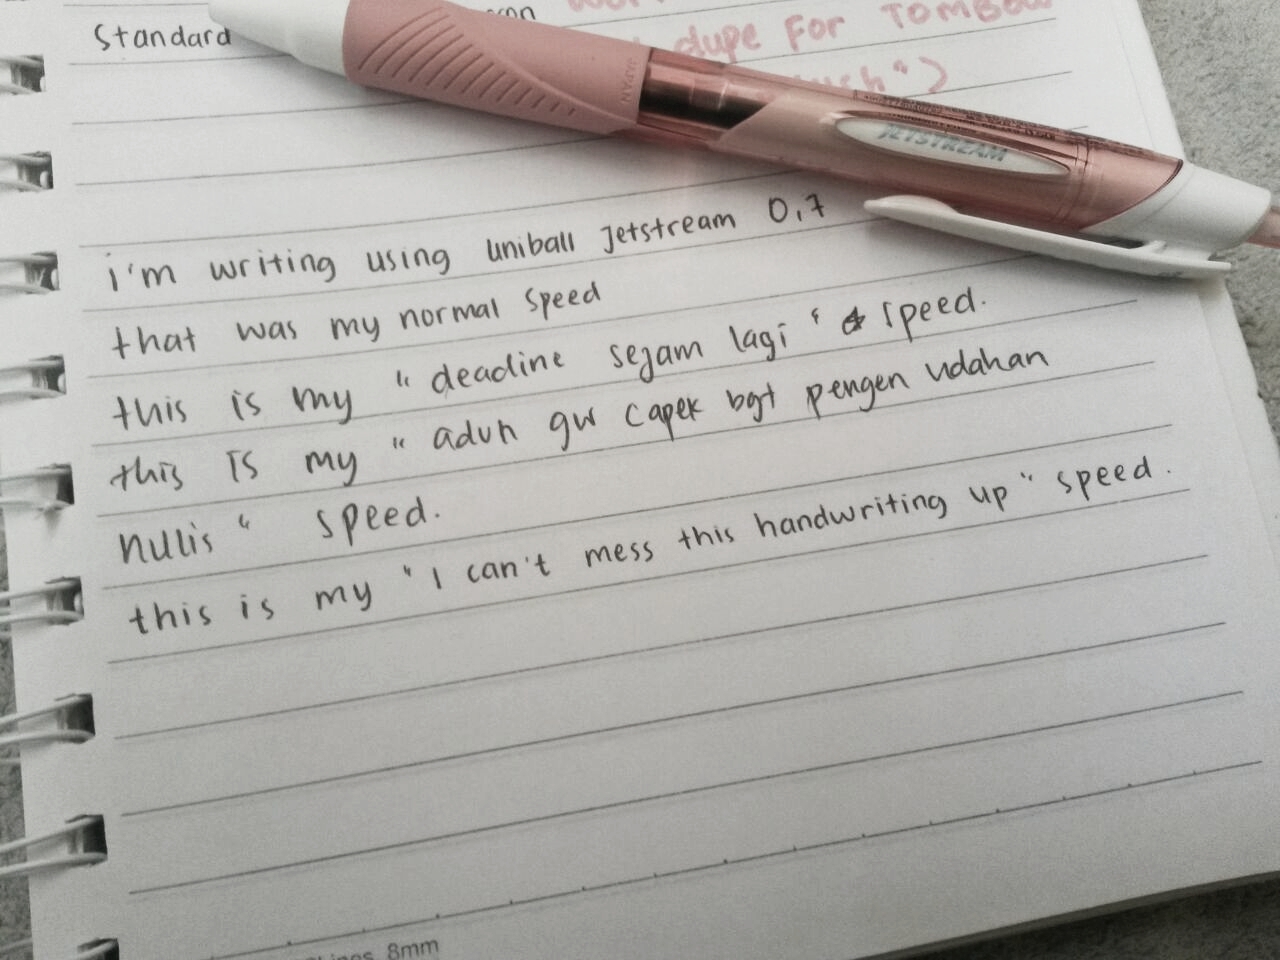 Standard
dupe for TOMBOW
JAPAN
JETSTREAM
i'm writing using uniball Jetstream 0,7
that was my normal speed
this is my " deadline sejam lagi " speed.
this is my " aduh gw capek bgt pengen udahan
nulis " speed.
this is my " I can't mess this handwriting up " speed.
8mm